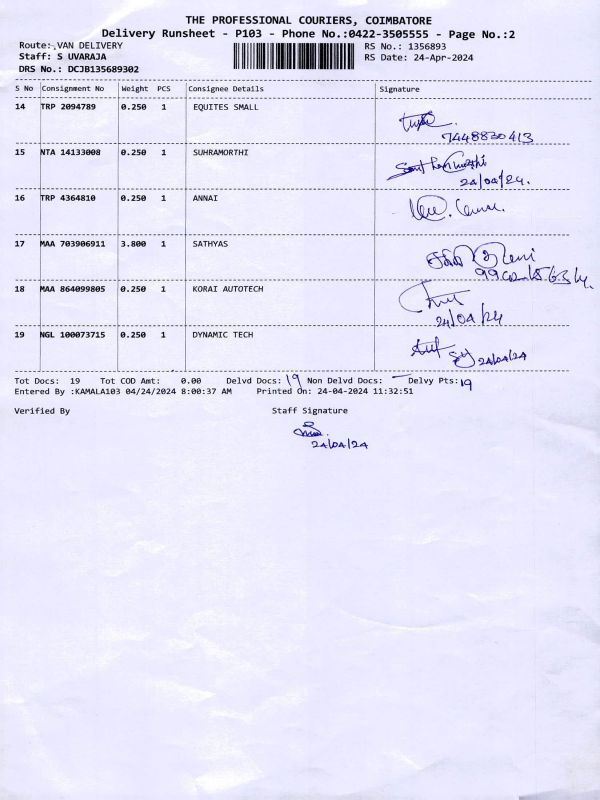 THE PROFESSIONAL COURIERS, COIMBATORE
Delivery Runsheet - P103 - Phone No.:0422-3505555 - Page No.:2
Route: VAN DELIVERY
RS No.: 1356893
Staff: S UVARAJA
RS Date: 24-Apr-2024
DRS No.: DCJB135689302
S No Consignment No Weight PCS Consignee Details Signature
14 TRP 2094789 0.250 1 EQUITES SMALL
7448830413
15 NTA 14133008 0.250 1 SUHRAMORTHI
24/04/24.
16 TRP 4364810 0.250 1 ANNAI
17 MAA 703906911 3.800 1 SATHYAS
18 MAA 864099805 0.250 1 KORAI AUTOTECH
24/04/24
19 NGL 100073715 0.250 1 DYNAMIC TECH
24/04/24
Tot Docs: 19 Tot COD Amt: 0.00 Delvd Docs: 19 Non Delvd Docs: — Delvy Pts: 19
Entered By :KAMALA103 04/24/2024 8:00:37 AM Printed On: 24-04-2024 11:32:51
Verified By Staff Signature
24/04/24